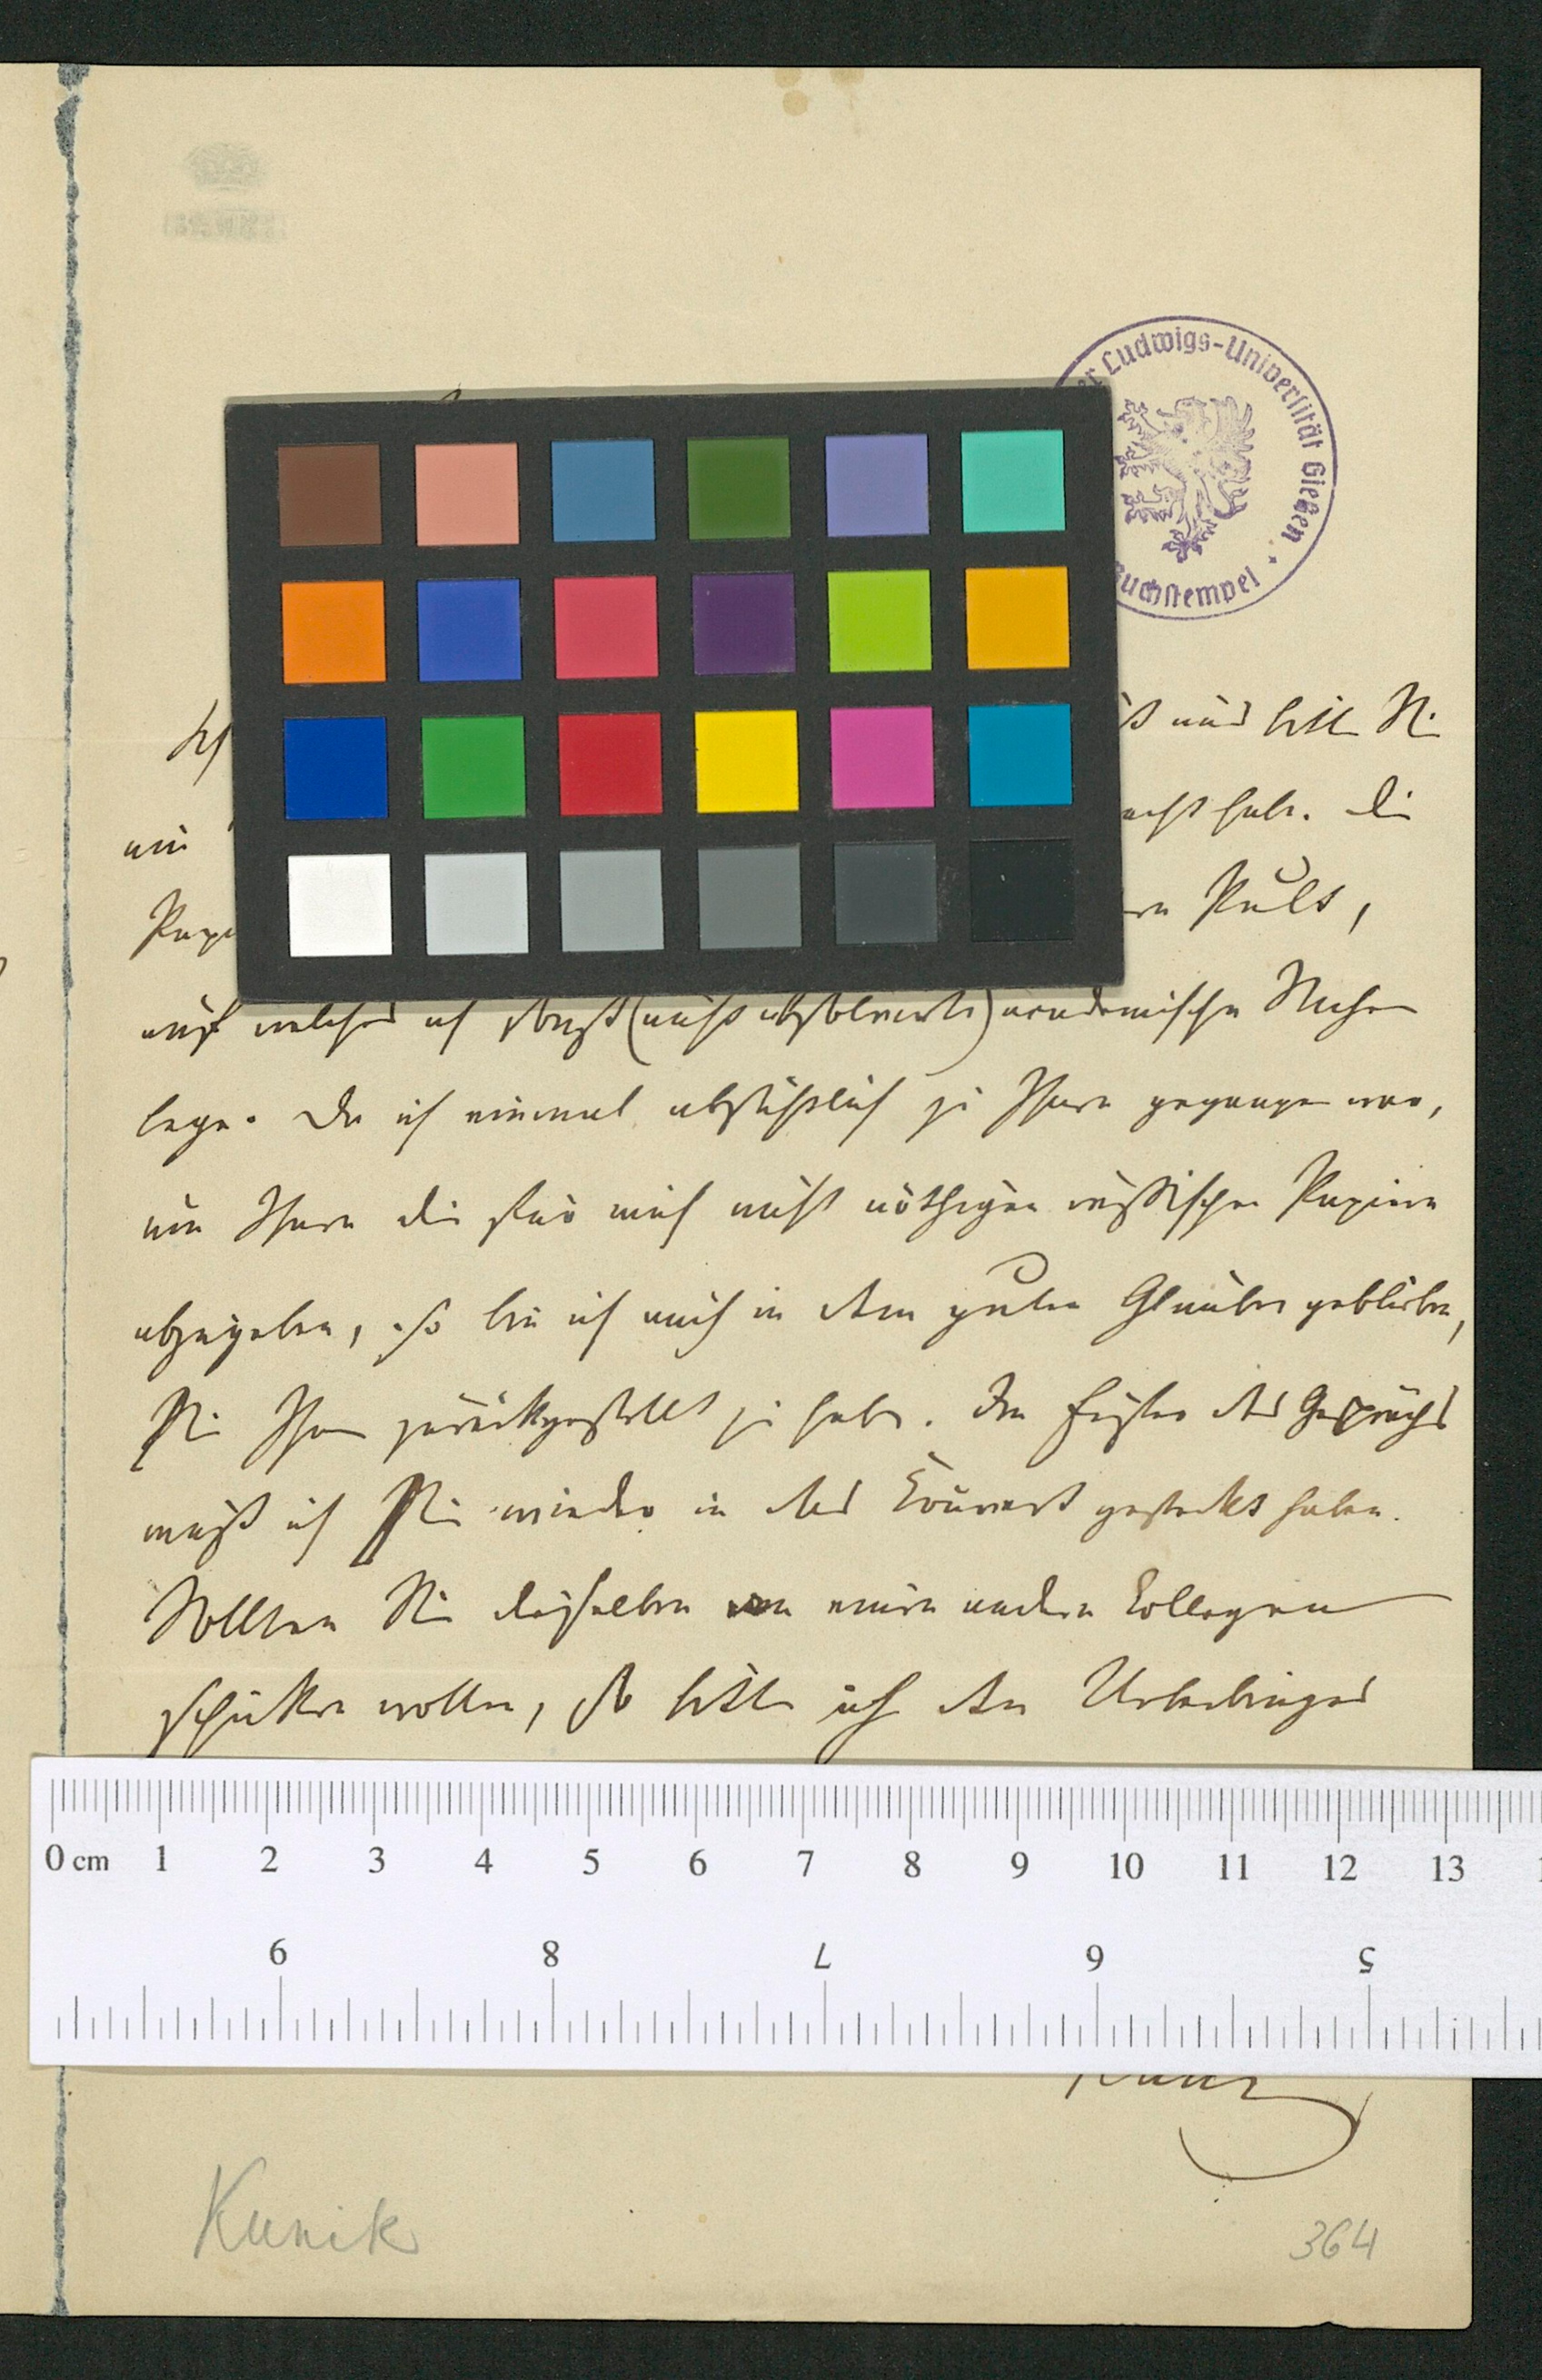 er Ludwigs-Universität Gießen
Buchstempel
Ich
und bitte Sie
um
habe. Die
Pult,
auf welches ich sonst (nicht absolvirte) academische Sachen
lege. Da ich einmal absichtlich zu Ihnen gegangen war,
um Ihnen die für mich nicht nöthigen russischen Papiere
abzugeben, so bin ich auch in dem guten Glauben geblieben,
Sie Ihnen zurückgestellt zu haben. Im Feuer des Gesprächs
muß ich Sie wieder in das Couvert gesteckt haben.
Sollten Sie dasselbe einem andern Collegen
schicken wollen, so bitte ich den Ueberbringer
0 cm 1 2 3 4 5 6 7 8 9 10 11 12 13
9 8 7 6 5
Kunik
364